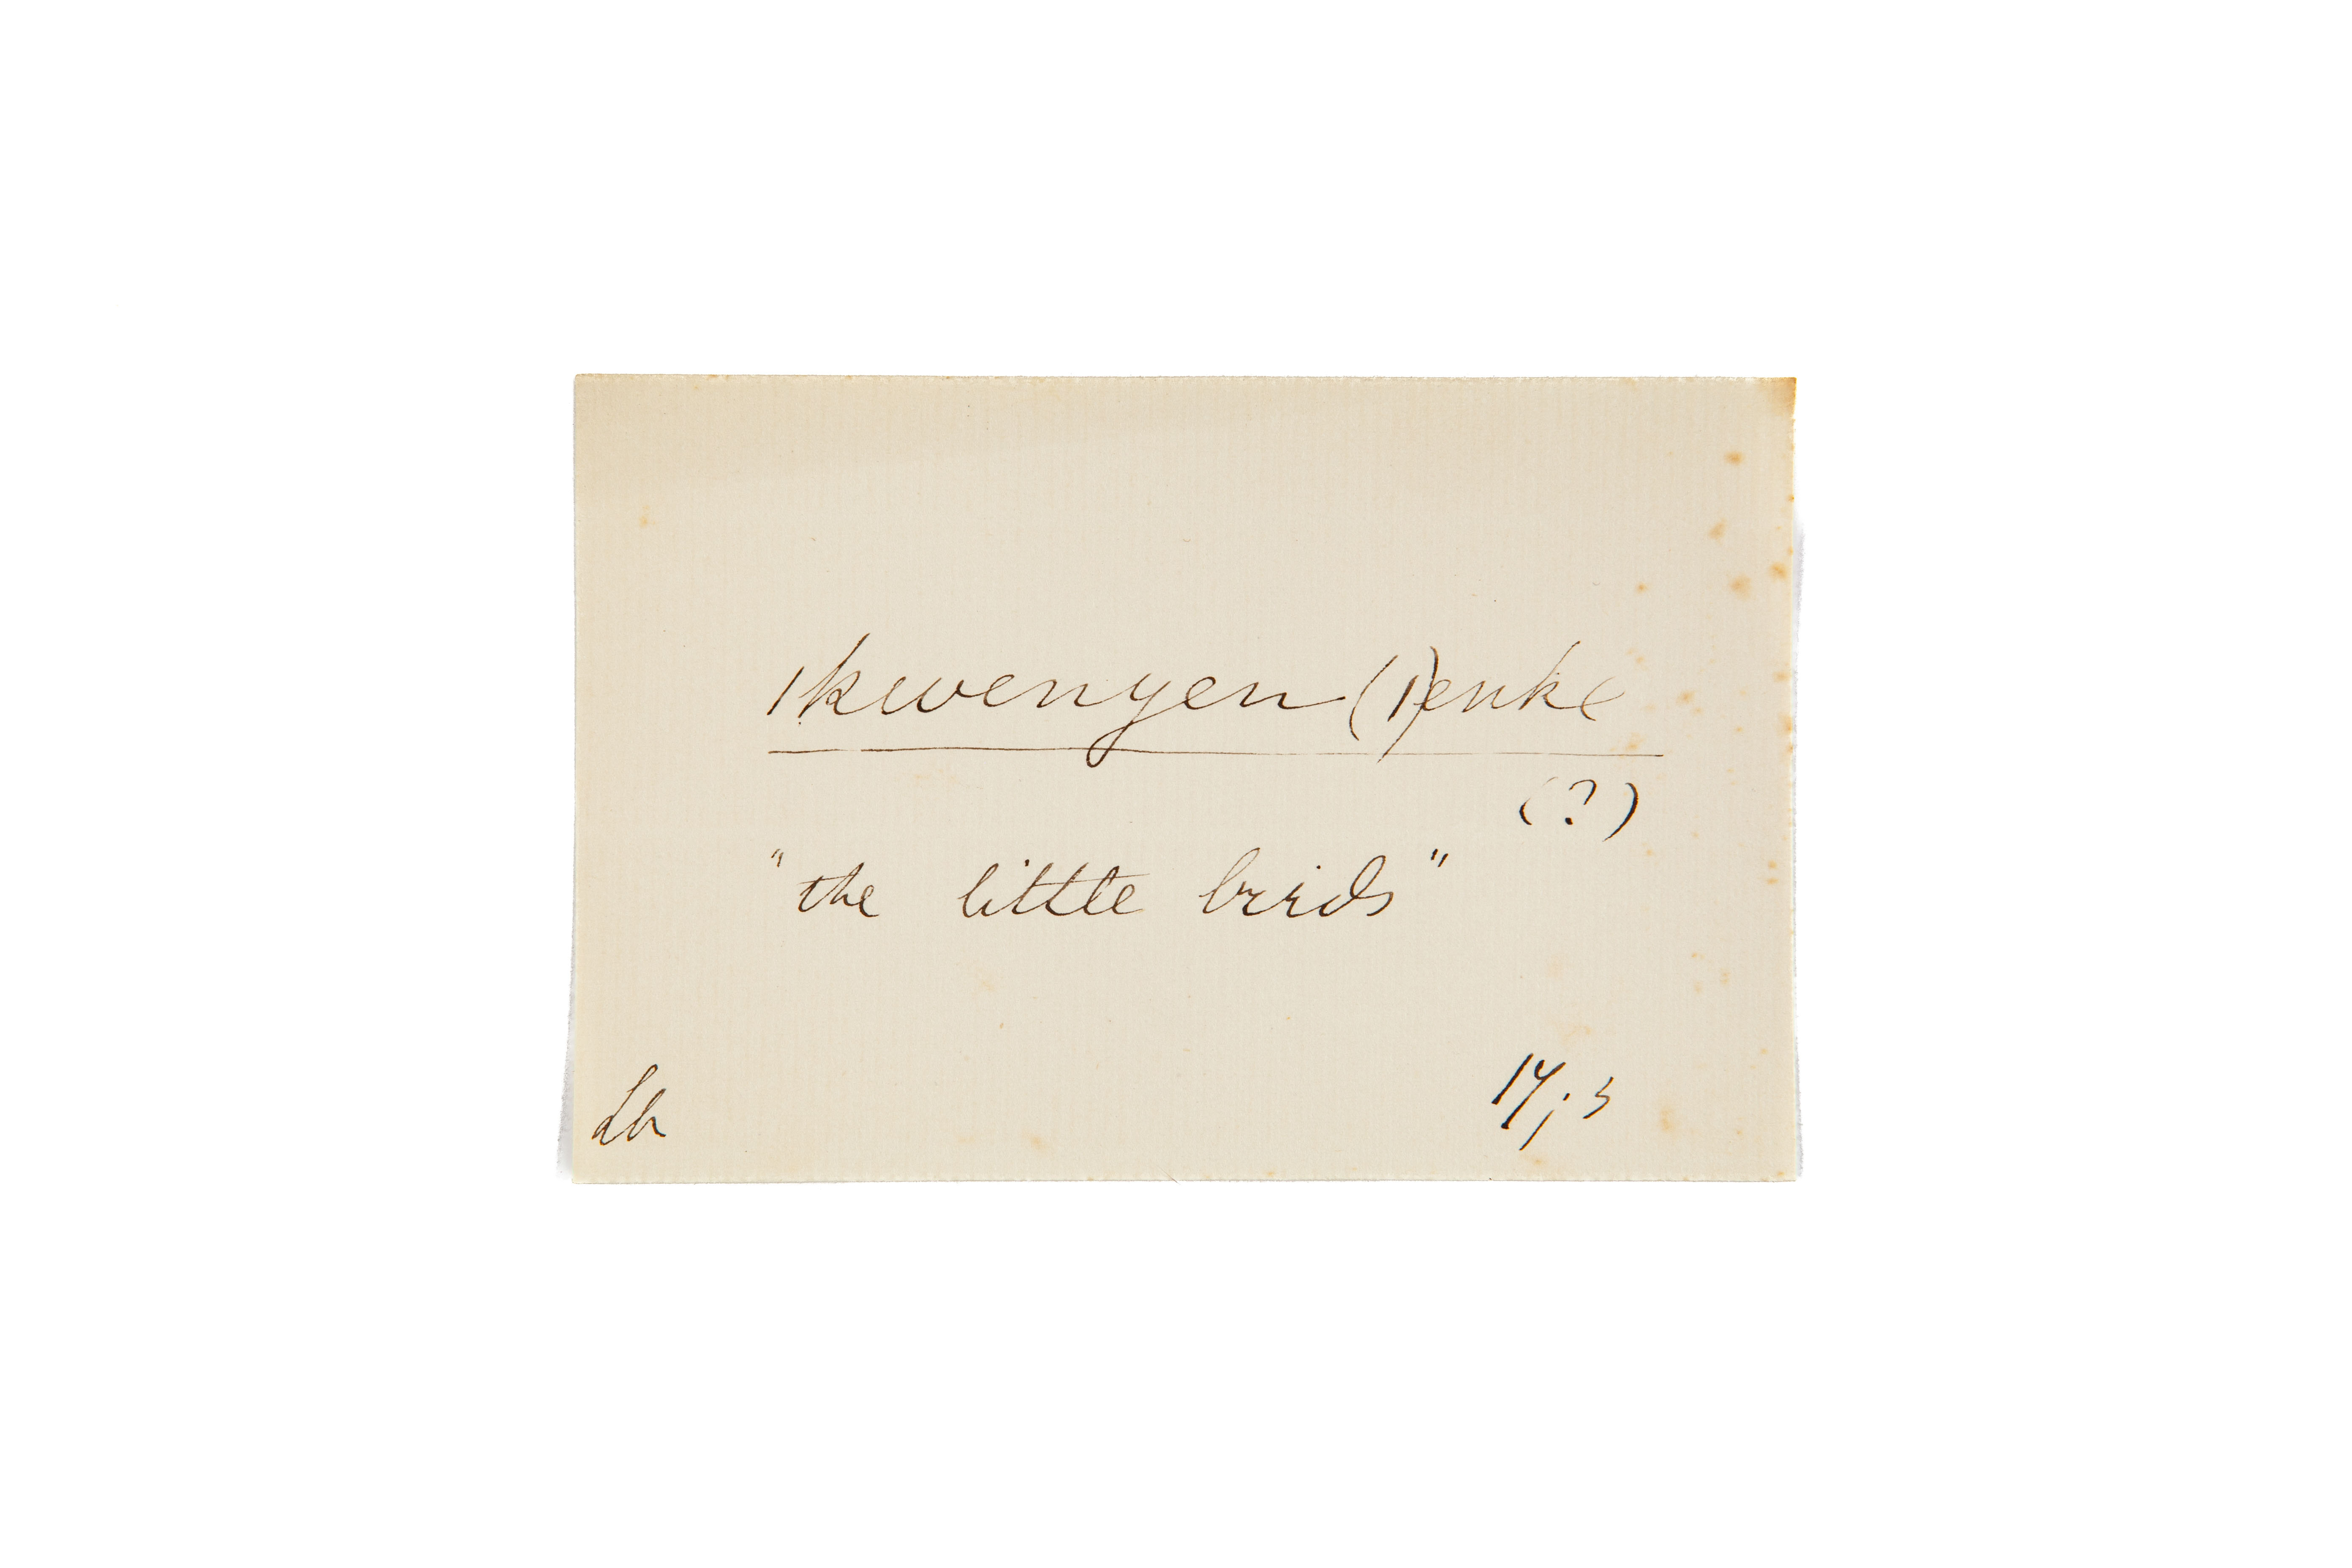 ǀkwenyen (ǀ)enke
(?)
"the little birds"
Lb
14; 5